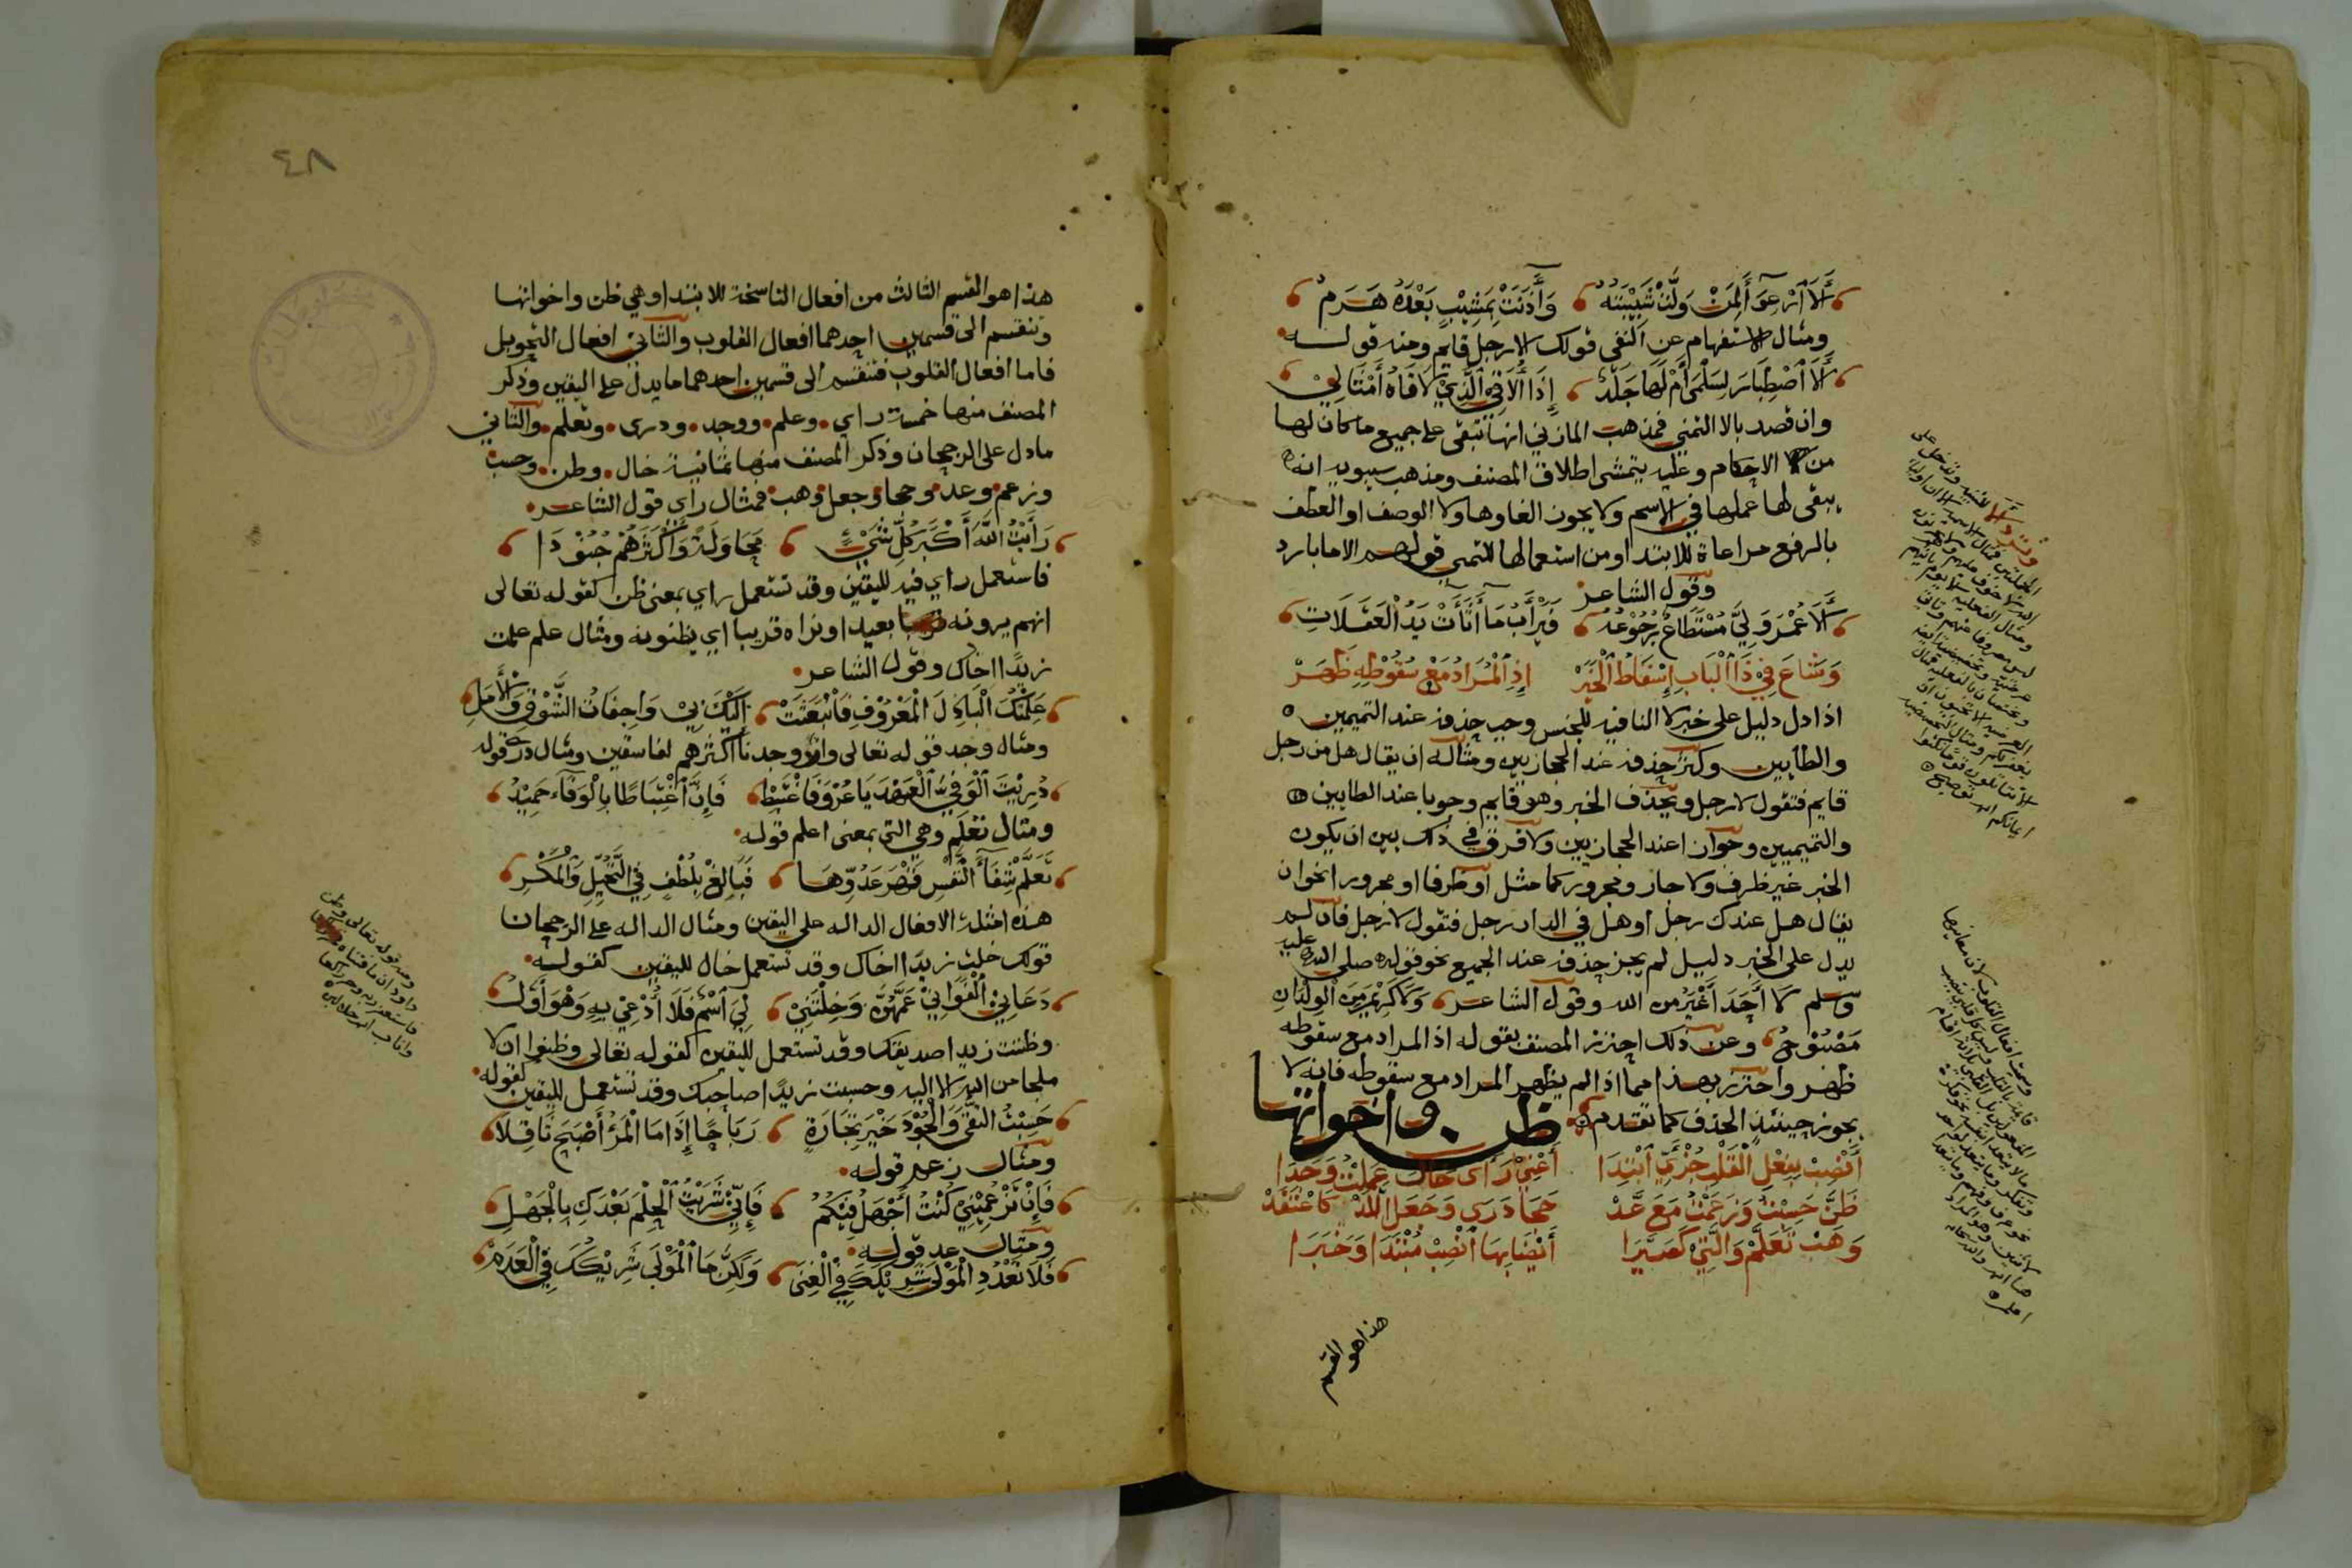 أَلَا ٱرْعِوَاءَ لِمَنْ وَلَّتْ شَبِيْبَتُهُ وَآذَنَتْ بِمَشِيْبٍ بَعْدَهُ هَرَمُ
ومثال الاستفهام عن النفي قولك الا رجل قايم ومنه قوله
أَلَا ٱصْطِبَارَ لِسَلْمَى أَمْ لَهَا جَلَدٌ إِذَا أُلَاقِي ٱلَّذِيْ لَاقَاهُ أَمْثَالِيْ
وان قصد بالا التمني فمذهب المازني انها تبقى على جميع ما كان لها
من الاحكام وعليه يتمشى اطلاق المصنف ومذهب سيبويه انه
يبقى لها عملها في الاسم ولا يجوز الغاوها ولا الوصف او العطف
بالرفع مراعاة للابتدا ومن استعمالها للتمني قولهم الا ما بارد
وقول الشاعر
أَلَا عُمْرَ وَلَّيَ مُسْتَطَاعٌ رُجُوْعُهُ فَيَرْأَبُ مَا أَثْأَتْ يَدُ ٱلْغَفَلَاتِ
وَشَاعَ فِيْ ذَا ٱلْبَابِ إِسْقَاطُ ٱلْخَبَرْ إِذِ ٱلْمُرَادُ مَعْ سُقُوْطِهِ ظَهَرْ
اذا دل دليل على خبر لا النافيه للجنس وجب حذفه عند التميمين
والطايين وكثر حذفه عند الحجازيين ومثاله ان يقال هل من رجل
قايم فتقول لا رجل ويحذف الخبر وهو قايم وجوبا عند الطايين
والتميميين وجوازا عند الحجازيين ولا فرق في ذلك بين ان يكون
الخبر غير ظرف ولا جار ومجرور كما مثل او ظرفا او مجرورا نحو ان
يقال هل عندك رجل او هل في الدار رجل فتقول لا رجل فان لم
يدل على الخبر دليل لم يجز حذفه عند الجميع نحو قوله صلى الله عليه
وسلم لا أَحَدَ أَغْيَرُ من الله وقول الشاعر وَلَا كَرِيْمَ مِنَ ٱلْوِلْدَانِ
مَصْبُوْحُ وعن ذلك احترز المصنف بقوله اذ المراد مع سقوطه
ظهر واحترز بهذا مما اذا لم يظهر المراد مع سقوطه فانه لا
يجوز حينئذ الحذف كما تقدم
ظن واخواتها
أُنْصِبْ بِفِعْلِ ٱلْقَلْبِ جُزْءَيِ ٱبْتِدَا أَعْنِيْ رَأَى خَالَ عَلِمْتُ وَجَدَا
ظَنَّ حَسِبْتُ وَزَعَمْتُ مَعَ عَدْ حَجَا دَرَى وَجَعَلَ ٱللَّذْ كَاعْتَقَدْ
وَهَبْ تَعَلَّمْ وَٱلَّتِيْ كَصَيَّرَا أَيْضًا بِهَا ٱنْصِبْ مُبْتَدًا وَخَبَرَا
هذا هو القسم
٤٨
هذا هو القسم الثالث من افعال الناسخة للابتدا وهي ظن واخواتها
وتنقسم الى قسمين احدهما افعال القلوب والثاني افعال التحويل
فاما افعال القلوب فتنقسم الى قسمين احدهما ما يدل على اليقين وذكر
المصنف منها خمسة راي وعلم ووجد ودرى وتعلم والثاني
ما دل على الرجحان وذكر المصنف منها ثمانية خال وظن وحسب
وزعم وعد وحجا وجعل وهب فمثال راي قول الشاعر
رَأَيْتُ ٱللَّهَ أَكْبَرَ كُلِّ شَيْءٍ مُحَاوَلَةً وَأَكْثَرَهُمْ جُنُوْدَا
فاستعمل راي فيه لليقين وقد تستعمل راي بمعنى ظن كقوله تعالى
انهم يرونه بعيدا ونراه قريبا اي يظنونه ومثال علم علمت
زيدًا اخاك وقول الشاعر
عَلِمْتُكَ ٱلْبَاذِلَ ٱلْمَعْرُوْفِ فَٱنْبَعَثَتْ إِلَيْكَ بِيْ وَاجِفَاتُ ٱلشَّوْقِ وَٱلْأَمَلِ
ومثال وجد قوله تعالى وان وجدنا اكثرهم لفاسقين ومثال درى قوله
دُرِيْتَ ٱلْوَفِيَّ ٱلْعَهْدَ يَا عُرْوَ فَاغْتَبِطْ فَإِنَّ ٱغْتِبَاطًا بِالْوَفَاءِ حَمِيْدُ
ومثال تعلم وهي التي بمعنى اعلم قوله
تَعَلَّمْ شِفَاءَ ٱلنَّفْسِ قَهْرَ عَدُوِّهَا فَبَالِغْ بِلُطْفٍ فِي ٱلتَّحَيُّلِ وَٱلْمَكْرِ
هذه امثلة الافعال الداله على اليقين ومثال الداله على الرجحان
قولك خلت زيدًا اخاك وقد تستعمل خال لليقين كقوله
دَعَانِيْ ٱلْغَوَانِيْ عَمَّهُنَّ وَخِلْتُنِيْ لِيَ ٱسْمٌ فَلَا أُدْعَيْ بِهِ وَهْوَ أَوَّلُ
وظننت زيدا صديقك وقد تستعمل لليقين كقوله تعالى وظنوا ان لا
ملجا من الله الا اليه وحسبت زيدًا صاحبك وقد تستعمل لليقين كقوله
حَسِبْتُ ٱلتُّقَى وَٱلْجُوْدَ خَيْرَ تِجَارَةٍ رَبَاحًا إِذَا مَا ٱلْمَرْءُ أَصْبَحَ ثَاقِلًا
ومثال زعم قوله
فَإِنْ تَزْعُمِيْنِيْ كُنْتُ أَجْهَلُ فِيْكُمُ فَإِنِّيْ شَرَيْتُ ٱلْحِلْمَ بَعْدَكِ بِالْجَهْلِ
ومثال عد قوله
فَلَا تَعْدُدِ ٱلْمَوْلَى شَرِيْكَكَ فِي ٱلْغِنَى وَلَكِنَّمَا ٱلْمَوْلَى شَرِيْكُكَ فِي ٱلْعَدَمْ
ومنه قوله تعالى وظن
داود ان ما فتناه
فاستغفر ربه وخر راكعا
واناب